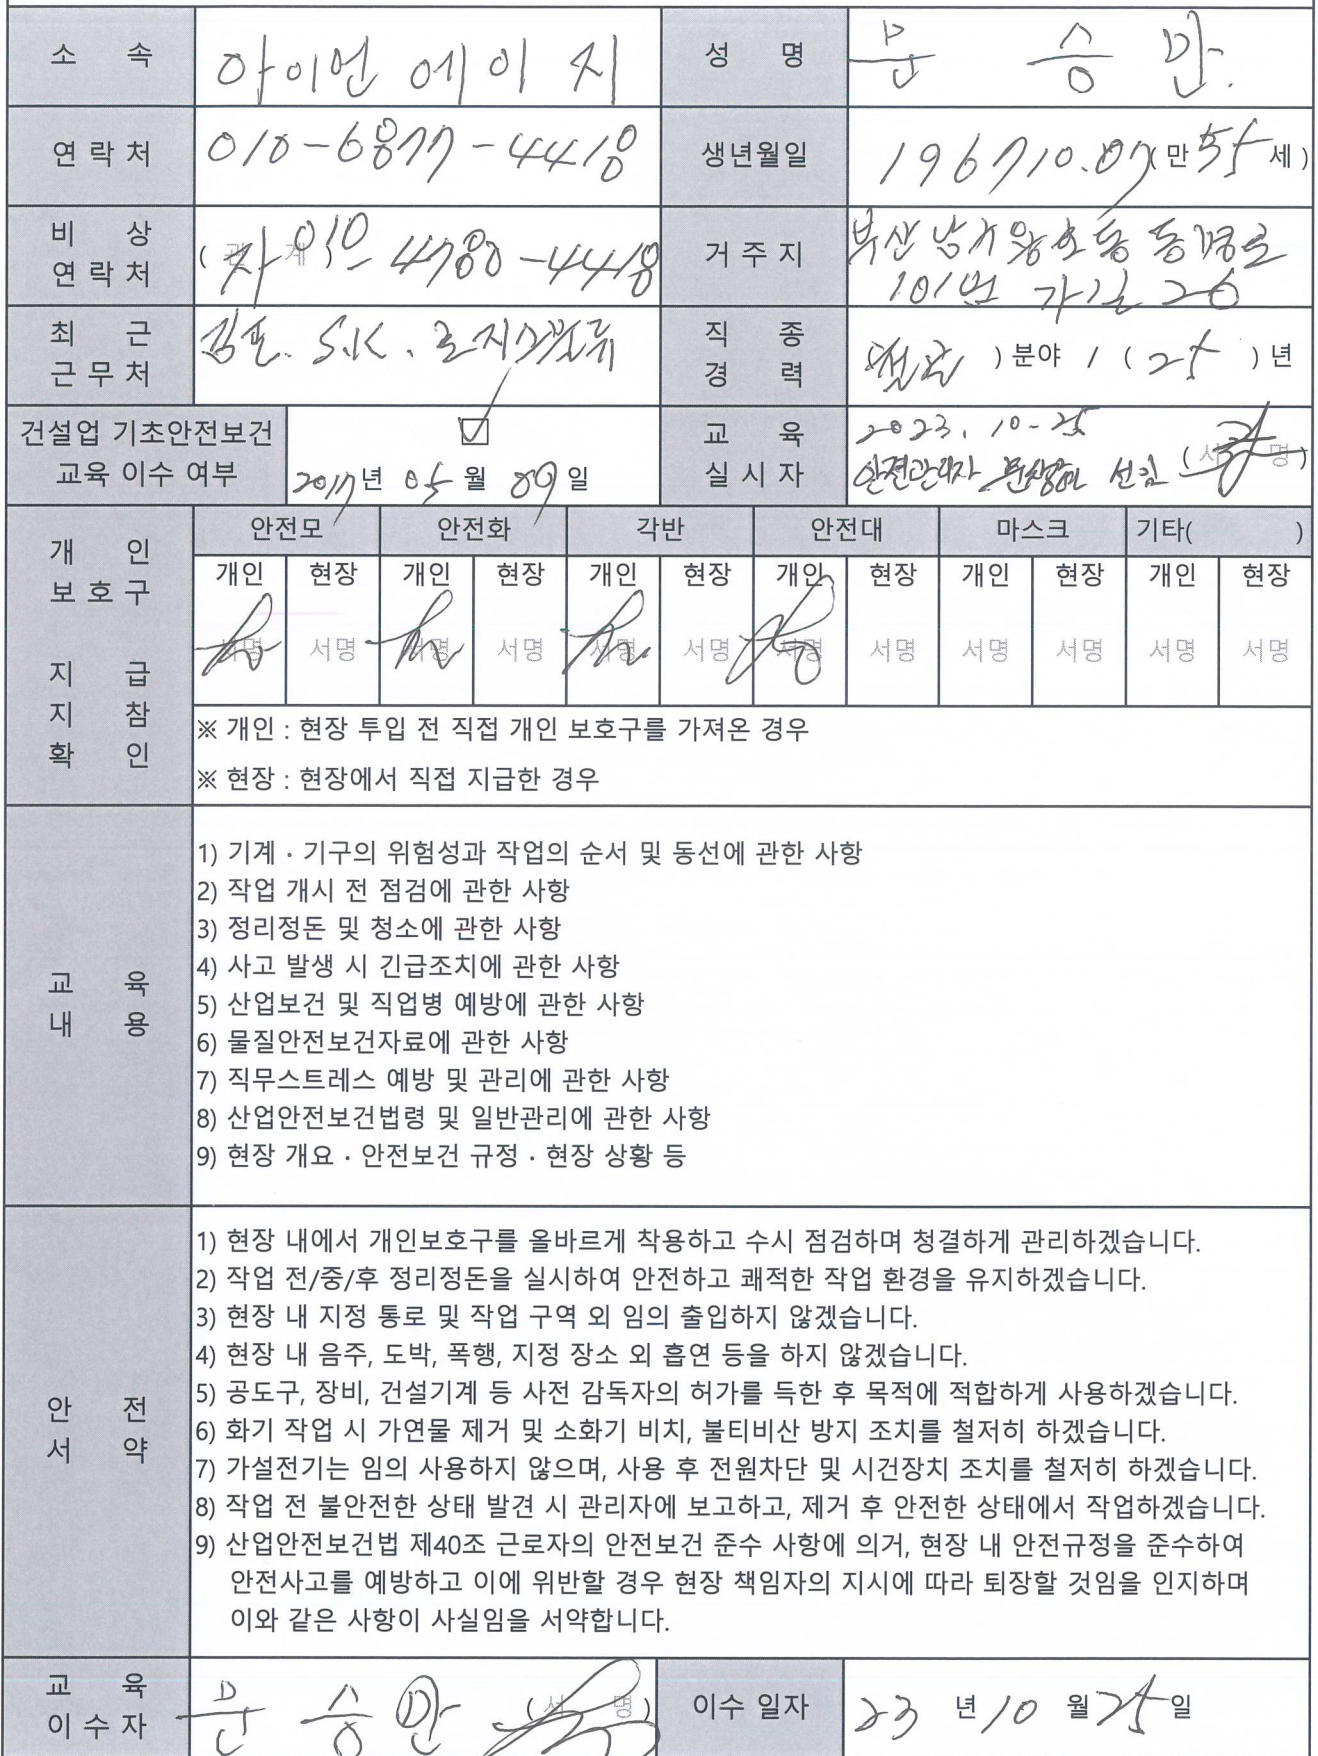 소 속 아이언에이지 성 명 문 승 만.
연락처 010-6877-4418 생년월일 1967 10.07 (만 55 세)
비 상
연락처 (관 계) 자 010-4780-4418 거주지 부산 남구 용호동 동명로
101번 가길 26
최 근
근무처 김포. S.K. 로지스물류 직 종
경 력 ) 분야 / ( 25 ) 년
건설업 기초안전보건
교육 이수 여부 ☑ 2017년 05월 09일
교 육
실시자 2023. 10-25
안전관리자 선임 (서 명)
개 인
보호구
지 급
지 참
확 인
안전모 안전화 각반 안전대 마스크 기타( )
개인 현장 개인 현장 개인 현장 개인 현장 개인 현장 개인 현장
서명 서명 서명 서명 서명 서명 서명 서명 서명 서명 서명 서명
※ 개인 : 현장 투입 전 직접 개인 보호구를 가져온 경우
※ 현장 : 현장에서 직접 지급한 경우
교 육
내 용
1) 기계 · 기구의 위험성과 작업의 순서 및 동선에 관한 사항
2) 작업 개시 전 점검에 관한 사항
3) 정리정돈 및 청소에 관한 사항
4) 사고 발생 시 긴급조치에 관한 사항
5) 산업보건 및 직업병 예방에 관한 사항
6) 물질안전보건자료에 관한 사항
7) 직무스트레스 예방 및 관리에 관한 사항
8) 산업안전보건법령 및 일반관리에 관한 사항
9) 현장 개요 · 안전보건 규정 · 현장 상황 등
안 전
서 약
1) 현장 내에서 개인보호구를 올바르게 착용하고 수시 점검하며 청결하게 관리하겠습니다.
2) 작업 전/중/후 정리정돈을 실시하여 안전하고 쾌적한 작업 환경을 유지하겠습니다.
3) 현장 내 지정 통로 및 작업 구역 외 임의 출입하지 않겠습니다.
4) 현장 내 음주, 도박, 폭행, 지정 장소 외 흡연 등을 하지 않겠습니다.
5) 공도구, 장비, 건설기계 등 사전 감독자의 허가를 득한 후 목적에 적합하게 사용하겠습니다.
6) 화기 작업 시 가연물 제거 및 소화기 비치, 불티비산 방지 조치를 철저히 하겠습니다.
7) 가설전기는 임의 사용하지 않으며, 사용 후 전원차단 및 시건장치 조치를 철저히 하겠습니다.
8) 작업 전 불안전한 상태 발견 시 관리자에 보고하고, 제거 후 안전한 상태에서 작업하겠습니다.
9) 산업안전보건법 제40조 근로자의 안전보건 준수 사항에 의거, 현장 내 안전규정을 준수하여
안전사고를 예방하고 이에 위반할 경우 현장 책임자의 지시에 따라 퇴장할 것임을 인지하며
이와 같은 사항이 사실임을 서약합니다.
교 육
이수자 문 승 만 (서 명) 이수 일자 23 년 10 월 25 일